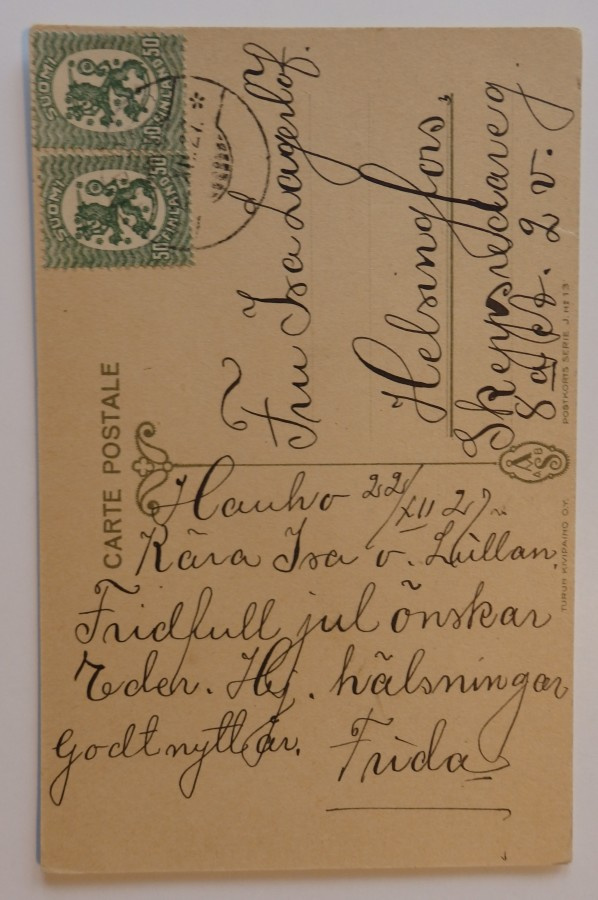 CARTE POSTALE
SUOMI FINLAND 50 50
SUOMI FINLAND 50 50
Fru Isa Lagerlöf.
Helsingfors.
Skeppsredareg.
8 2 v.
Hauho 22/XII 27
Kära Isa o. Lullan
Fridfull jul önskar
Eder. Hj. hälsningar
Godt nytt år. Frida
TURUN KIVIPAINO OY.
POSTKORTS SERIE J. Nº 13